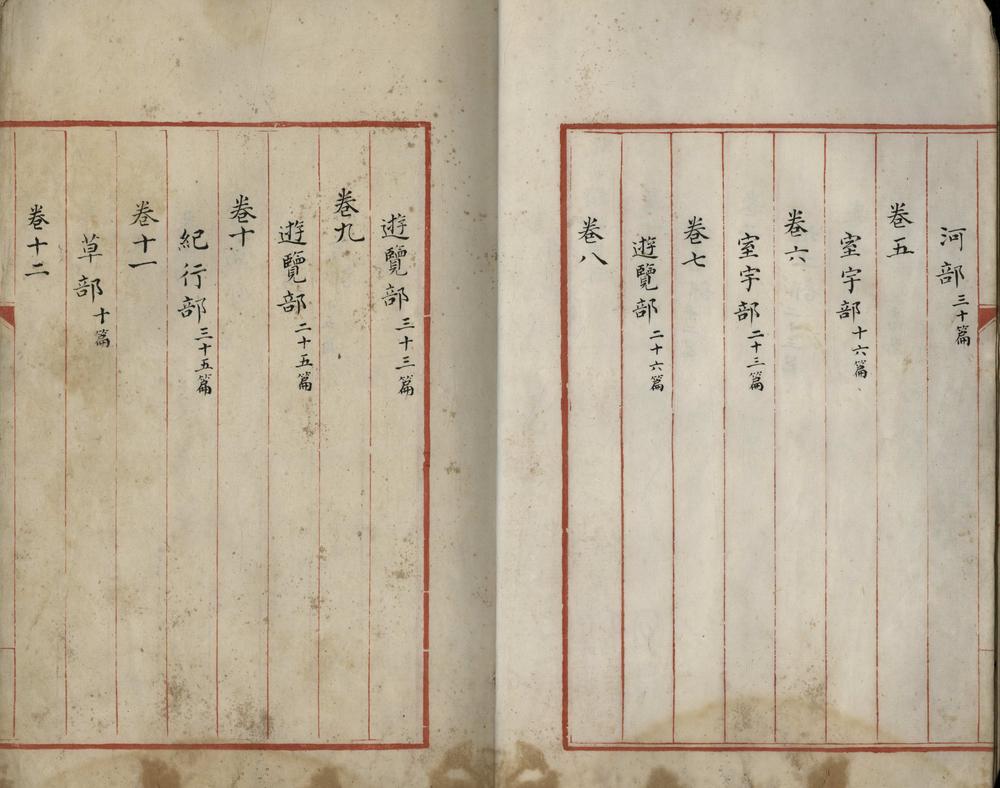 河部三十篇
卷五
室宇部十六篇
卷六
室宇部二十三篇
卷七
遊覽部二十六篇
卷八
遊覽部三十三篇
卷九
遊覽部二十五篇
卷十
紀行部三十五篇
卷十一
草部十篇
卷十二